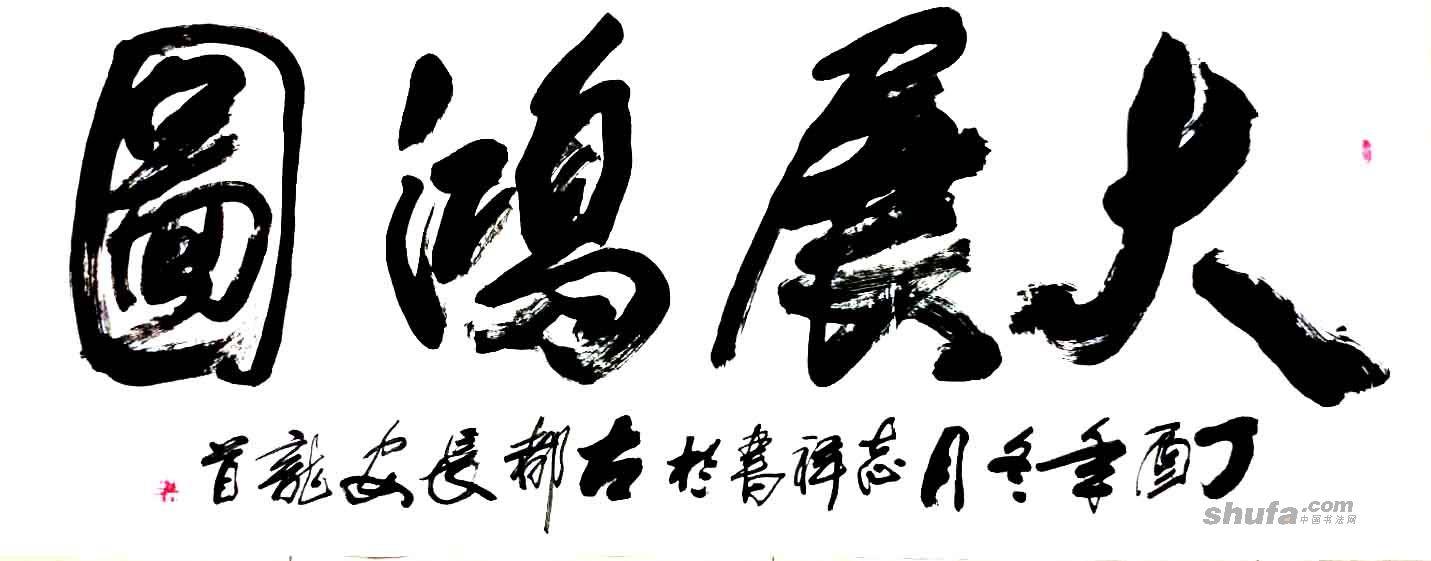 大展鴻圖
丁酉年冬月志祥書於古都長安龍首
shufa.com
中国书法网